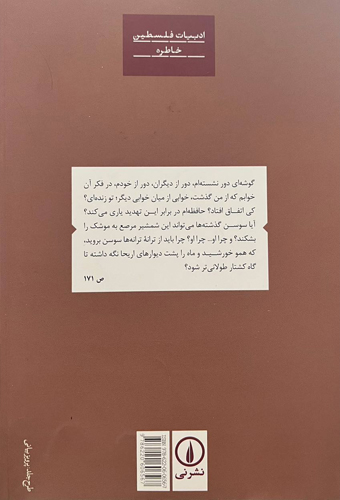 ادبیات فلسطین
خاطره
گوشه‌ای دور نشسته‌ام، دور از دیگران، دور از خودم، در فکر آن
خوابم که از من گذشت، خوابی از میان خوابی دیگر؛ تو زنده‌ای؟
کی اتفاق افتاد؟ حافظه‌ام در برابر ایـن تهدید یاری می‌کند؟
آیا سوسـن گذشته‌ها می‌تواند این شمشیر مرصع به موشک را
بشکند؟ و چرا او... چرا او؟ چرا باید از ترانهٔ ترانه‌ها سوسن بروید،
که همو خورشـید و ماه را پشت دیوارهای اریحا نگه داشته تا
گاه کشتار طولانی‌تر شود؟
ص ۱۷۱
نشرنی